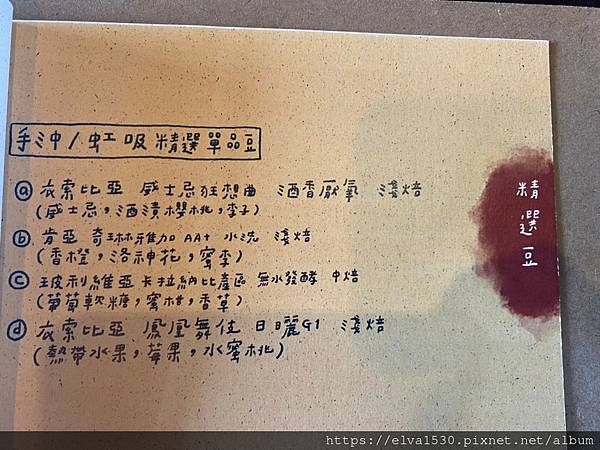 手沖/虹吸精選單品豆
ⓐ 衣索比亞 威士忌狂想曲 酒香厭氧 淺焙
(威士忌,酒漬櫻桃,李子)
ⓑ 肯亞 奇琳雅加 AA+ 水洗 淺焙
(香橙,洛神花,蜜李)
ⓒ 玻利維亞卡拉納比產區 無水發酵 中焙
(葡萄軟糖,蜜柑,香草)
ⓓ 衣索比亞 鳳凰舞伎 日曬G1 淺焙
(熱帶水果,莓果,水蜜桃)
精選豆
https://elva1530.pixnet.net/album